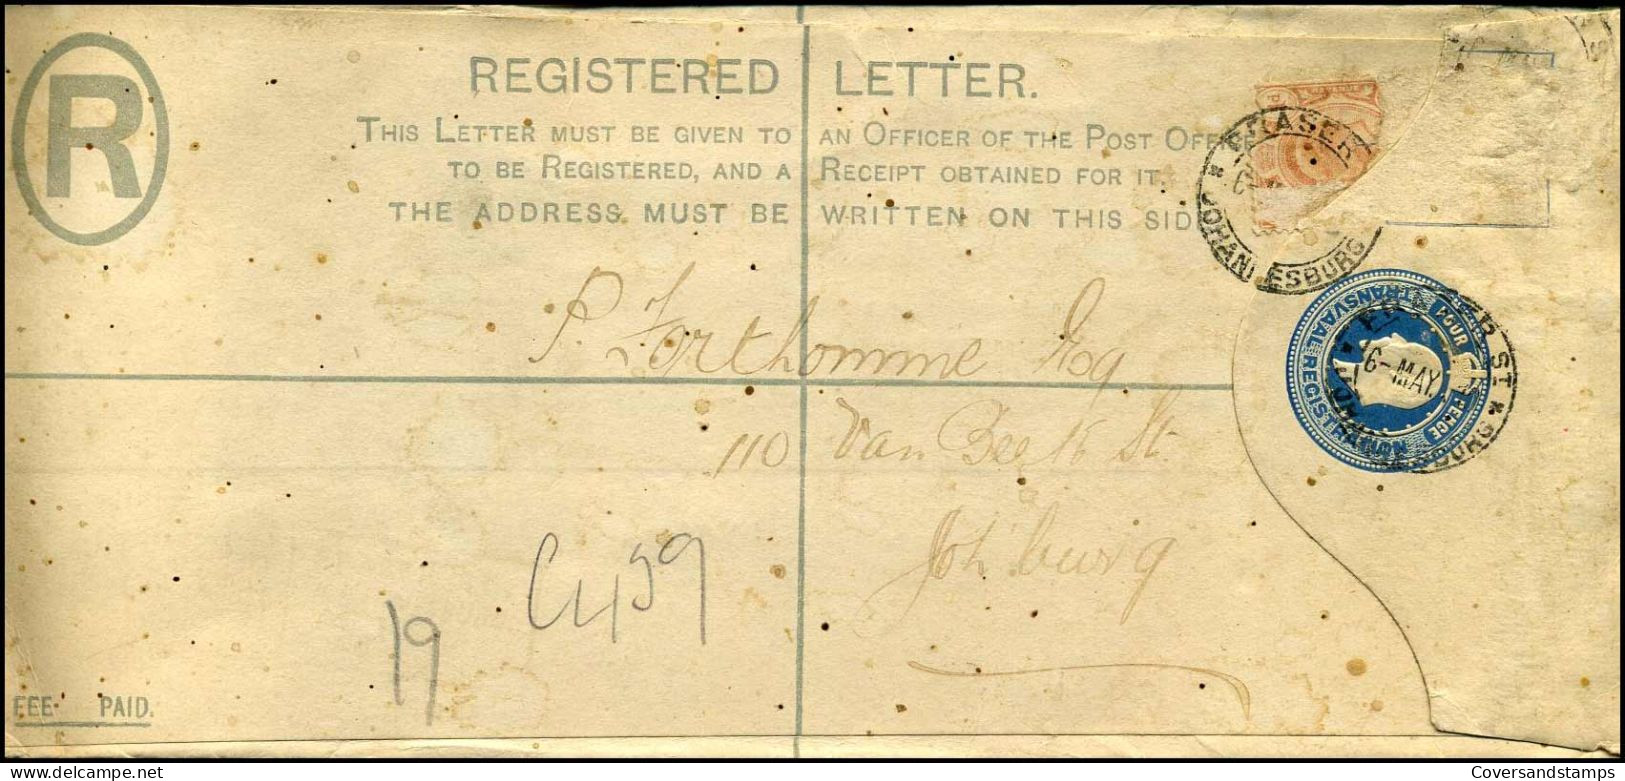 R
REGISTERED LETTER.
THIS LETTER MUST BE GIVEN TO AN OFFICER OF THE POST OFFICE
TO BE REGISTERED, AND A RECEIPT OBTAINED FOR IT.
THE ADDRESS MUST BE WRITTEN ON THIS SID
FRASER
JOHANNESBURG
TRANSVAAL REGISTRATION
FOUR PENCE
ST
6-MAY
P. Forthomme Esq
110 Van Beek St.
Joh'burg
C459
19
FEE PAID.
Coversandstamps